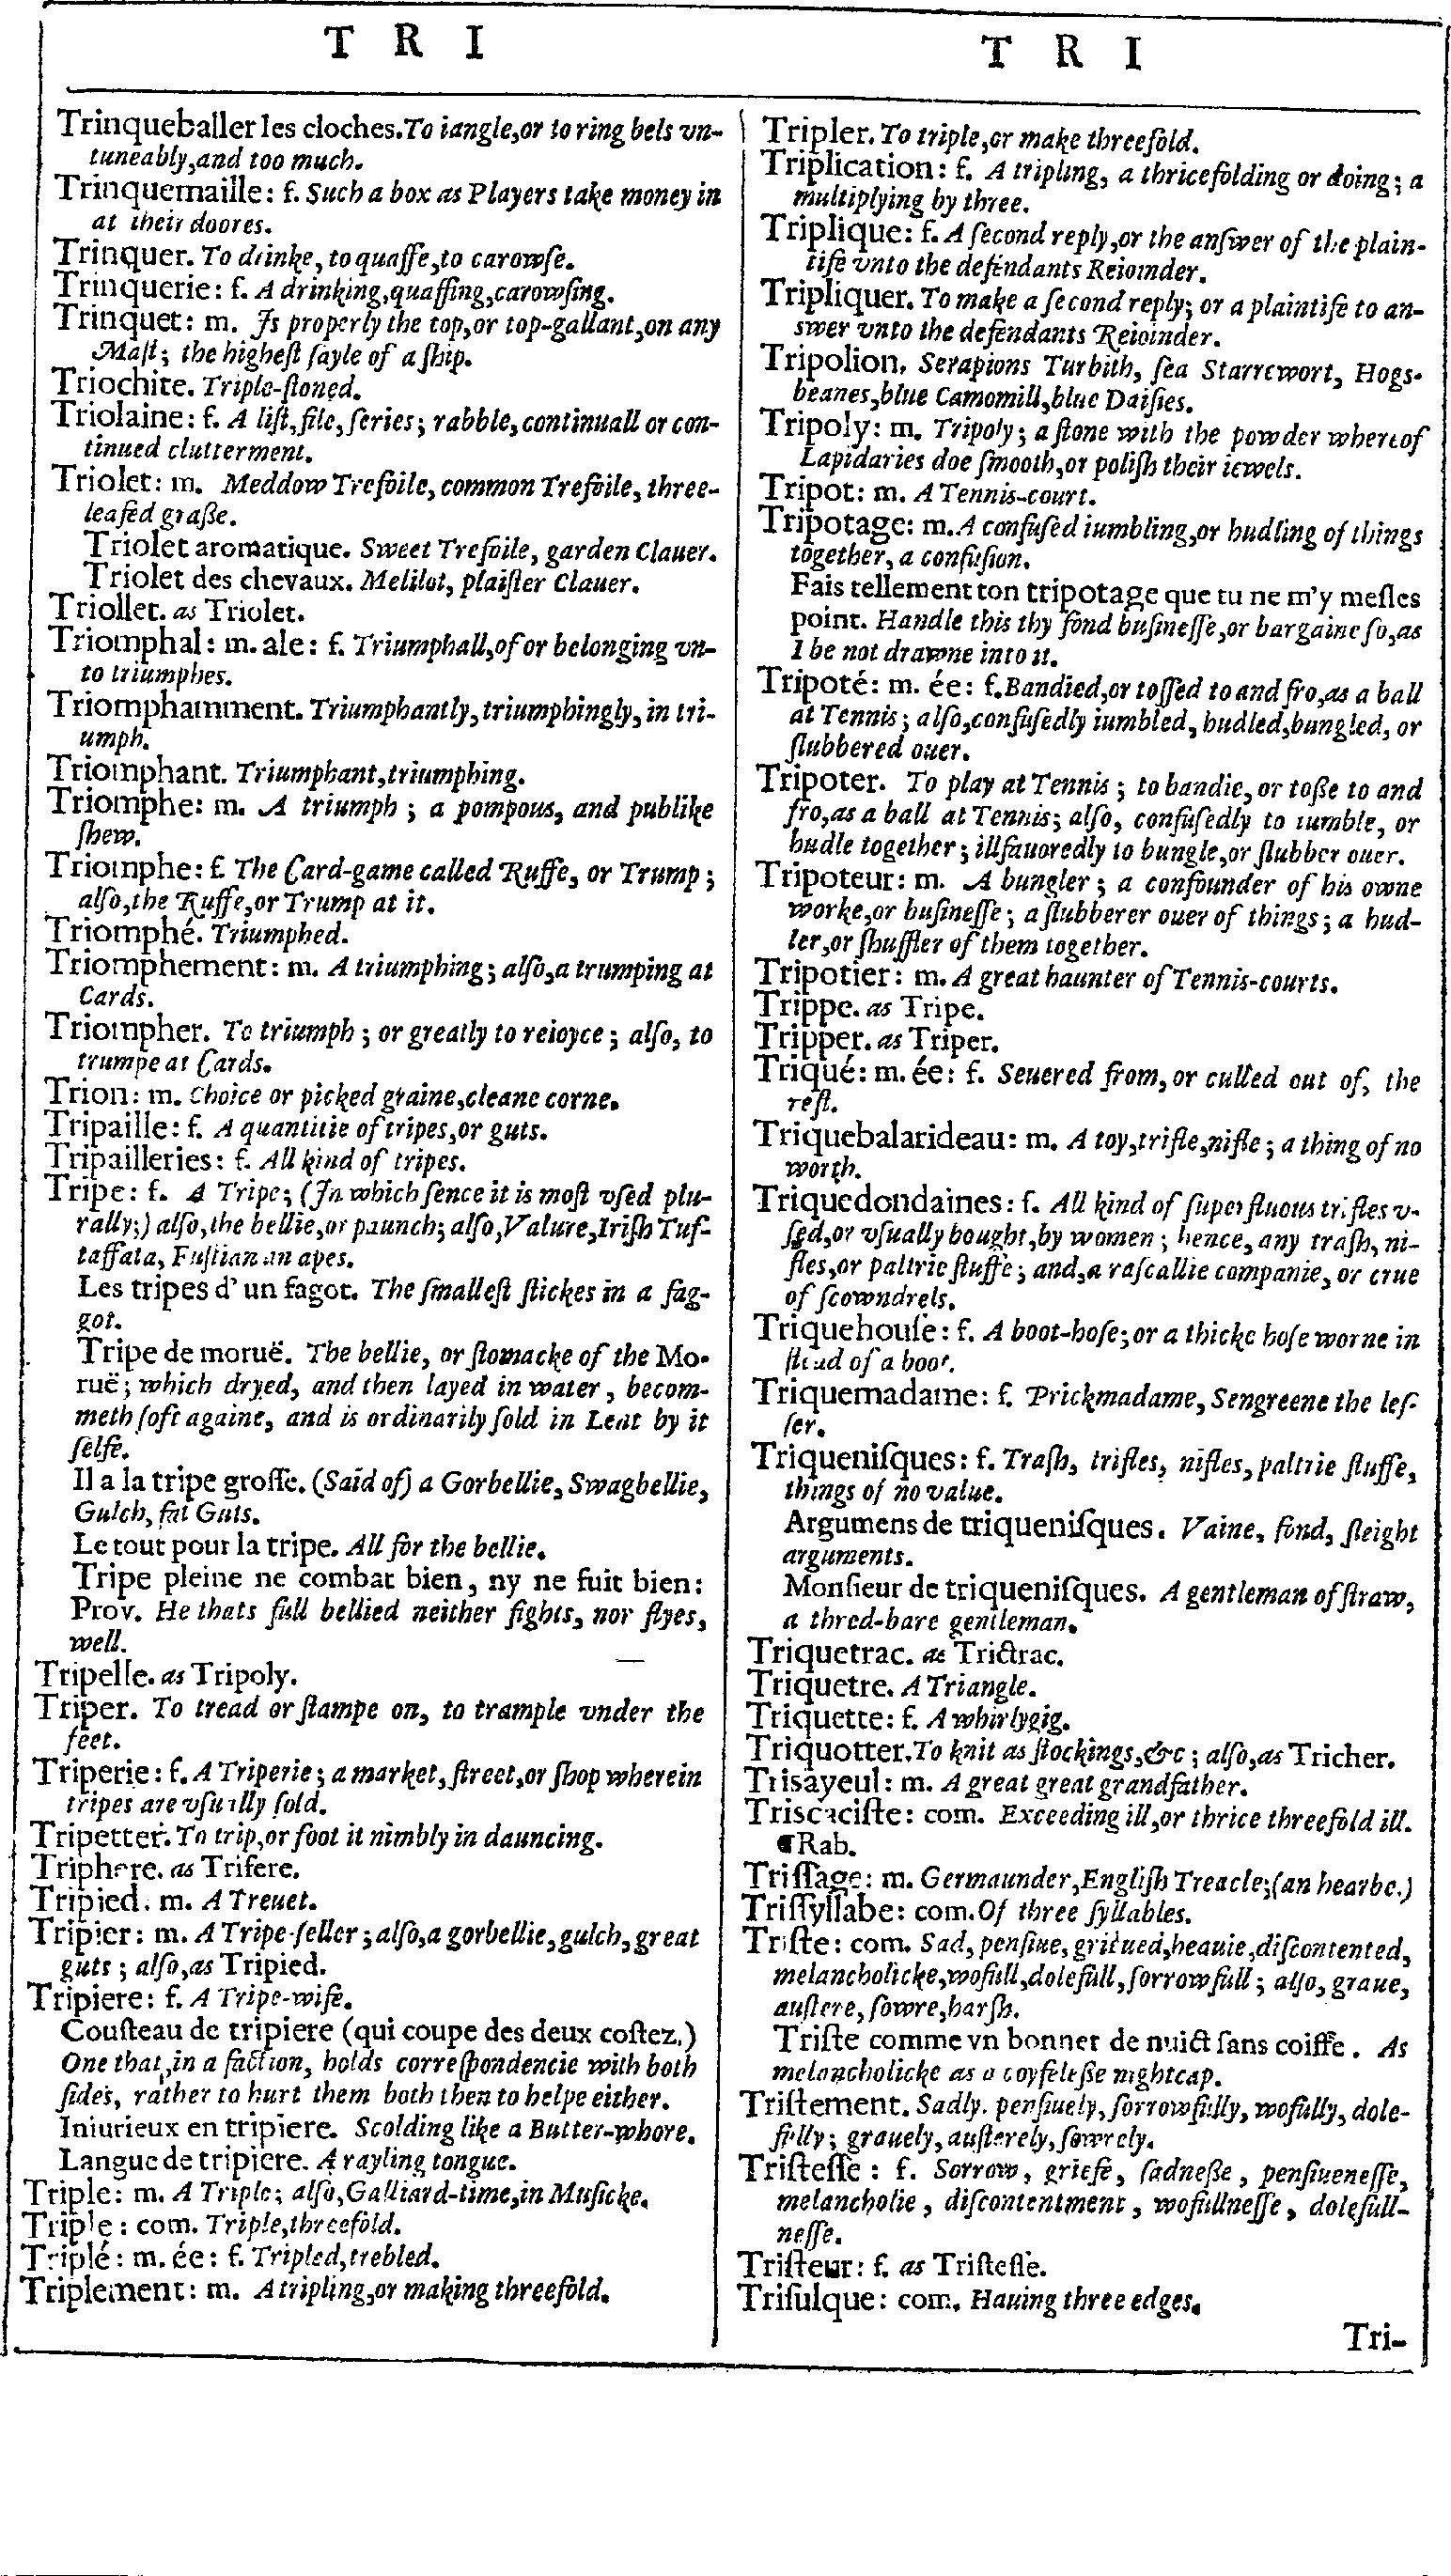 T R I
Trinqueballer les cloches. To iangle, or to ring bels vn-
tuneably, and too much.
Trinquemaille: f. Such a box as Players take money in
at their doores.
Trinquer. To drinke, to quaffe, to carowſe.
Trinquerie: f. A drinking, quaffing, carowſing.
Trinquet: m. Is properly the top, or top-gallant, on any
Maſt; the higheſt ſayle of a ſhip.
Triochite. Triple-ſtoned.
Triolaine: f. A liſt, file, ſeries; rabble, continuall or con-
tinued clutterment.
Triolet: m. Meddow Trefoile, common Trefoile, three-
leafed graße.
Triolet aromatique. Sweet Trefoile, garden Clauer.
Triolet des chevaux. Melilot, plaiſter Clauer.
Triollet. as Triolet.
Triomphal: m. ale: f. Triumphall, of or belonging vn-
to triumphes.
Triomphamment. Triumphantly, triumphingly, in tri-
umph.
Triomphant. Triumphant, triumphing.
Triomphe: m. A triumph; a pompous, and publike
ſhew.
Triomphe: f. The Card-game called Ruffe, or Trump;
alſo, the Ruffe, or Trump at it.
Triomphé. Triumphed.
Triomphement: m. A triumphing; alſo, a trumping at
Cards.
Triompher. To triumph; or greatly to reioyce; alſo, to
trumpe at Cards.
Trion: m. Choice or picked graine, cleane corne.
Tripaille: f. A quantitie of tripes, or guts.
Tripailleries: f. All kind of tripes.
Tripe: f. A Tripe; (In which ſence it is moſt vſed plu-
rally;) alſo, the bellie, or paunch; alſo, Valure, Iriſh Tuf-
taffata, Fuſtian an apes.
Les tripes d'un fagot. The ſmalleſt ſtickes in a fag-
got.
Tripe de moruë. The bellie, or ſtomacke of the Mo-
ruë; which dryed, and then layed in water, becom-
meth ſoft againe, and is ordinarily ſold in Lent by it
ſelfe.
Il a la tripe groſſe. (Said of) a Gorbellie, Swagbellie,
Gulch, fat Guts.
Le tout pour la tripe. All for the bellie.
Tripe pleine ne combat bien, ny ne fuit bien:
Prov. He thats full bellied neither fights, nor flyes,
well.
Tripelle. as Tripoly.
Triper. To tread or ſtampe on, to trample vnder the
feet.
Triperie: f. A Triperie; a market, ſtreet, or ſhop wherein
tripes are vſually ſold.
Tripetter. To trip, or foot it nimbly in dauncing.
Triphere. as Trifere.
Tripied. m. A Treuet.
Tripier: m. A Tripe-ſeller; alſo, a gorbellie, gulch, great
guts; alſo, as Tripied.
Tripiere: f. A Tripe-wife.
Couſteau de tripiere (qui coupe des deux coſtez.)
One that, in a faction, holds correſpondencie with both
ſides, rather to hurt them both then to helpe either.
Iniurieux en tripiere. Scolding like a Butter-whore.
Langue de tripiere. A rayling tongue.
Triple: m. A Triple; alſo, Galliard-time, in Muſicke.
Triple: com. Triple, threefold.
Triplé: m. ée: f. Tripled, trebled.
Triplement: m. A tripling, or making threefold.
T R I
Tripler. To triple, or make threefold.
Triplication: f. A tripling, a thricefolding or doing; a
multiplying by three.
Triplique: f. A ſecond reply, or the anſwer of the plain-
tife vnto the defendants Reioinder.
Tripliquer. To make a ſecond reply; or a plaintife to an-
swer vnto the defendants Reioinder.
Tripolion. Serapions Turbith, ſea Starrewort, Hogs-
beanes, blue Camomill, blue Daiſies.
Tripoly: m. Tripoly; a ſtone with the powder whereof
Lapidaries doe ſmooth, or poliſh their iewels.
Tripot: m. A Tennis-court.
Tripotage: m. A confuſed iumbling, or hudling of things
together, a confuſion.
Fais tellement ton tripotage que tu ne m'y meſles
point. Handle this thy fond buſineſſe, or bargaine ſo, as
I be not drawne into it.
Tripoté: m. ée: f. Bandied, or toſſed to and fro, as a ball
at Tennis; alſo, confuſedly iumbled, hudled, bungled, or
ſlubbered ouer.
Tripoter. To play at Tennis; to bandie, or toße to and
fro, as a ball at Tennis; alſo, confuſedly to iumble, or
hudle together; illfauoredly to bungle, or ſlubber ouer.
Tripoteur: m. A bungler; a confounder of his owne
worke, or buſineſſe; a ſlubberer ouer of things; a hud-
ler, or ſhuffler of them together.
Tripotier: m. A great haunter of Tennis-courts.
Trippe. as Tripe.
Tripper. as Triper.
Triqué: m. ée: f. Seuered from, or culled out of, the
reſt.
Triquebalarideau: m. A toy, trifle, nifle; a thing of no
worth.
Triquedondaines: f. All kind of ſuperfluous trifles v-
ſed, or vſually bought, by women; hence, any traſh, ni-
fles, or paltrie ſtuffe; and, a raſcallie companie, or crue
of ſcowndrels.
Triquehouſe: f. A boot-hoſe; or a thicke hoſe worne in
ſtead of a boot.
Triquemadame: f. Prickmadame, Sengreene the leſ-
ſer.
Triqueniſques: f. Traſh, trifles, nifles, paltrie ſtuffe,
things of no value.
Argumens de triqueniſques. Vaine, fond, ſleight
arguments.
Monſieur de triqueniſques. A gentleman of ſtraw,
a thred-bare gentleman.
Triquetrac. as Trictrac.
Triquetre. A Triangle.
Triquette: f. A whirlygig.
Triquotter. To knit as ſtockings, &c; alſo, as Tricher.
Trisayeul: m. A great great grandfather.
Triscaciſte: com. Exceeding ill, or thrice threefold ill.
¶Rab.
Triſſage: m. Germaunder, Engliſh Treacle; (an hearbe.)
Triſſyllabe: com. Of three ſyllables.
Triſte: com. Sad, penſiue, grieued, heauie, diſcontented,
melancholicke, wofull, dolefull, ſorrowfull; alſo, graue,
auſtere, ſowre, harſh.
Triſte comme vn bonnet de nuict ſans coiffe. As
melancholicke as a coyfeleße nightcap.
Triſtement. Sadly, penſiuely, ſorrowfully, wofully, dole-
fully; grauely, auſterely, ſowrely.
Triſteſſe: f. Sorrow, griefe, ſadneße, penſiueneſſe,
melancholie, diſcontentment, wofullneſſe, dolefull-
neſſe.
Triſteur: f. as Triſteſſe.
Triſulque: com. Hauing three edges.
Tri-